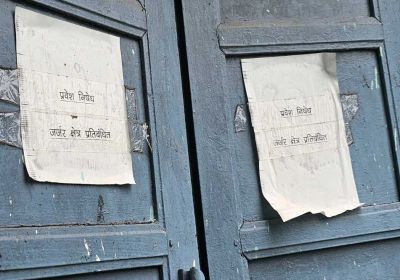 प्रवेश निषेध
जर्जर क्षेत्र प्रतिबंधित
प्रवेश निषेध
जर्जर क्षेत्र प्रतिबंधित